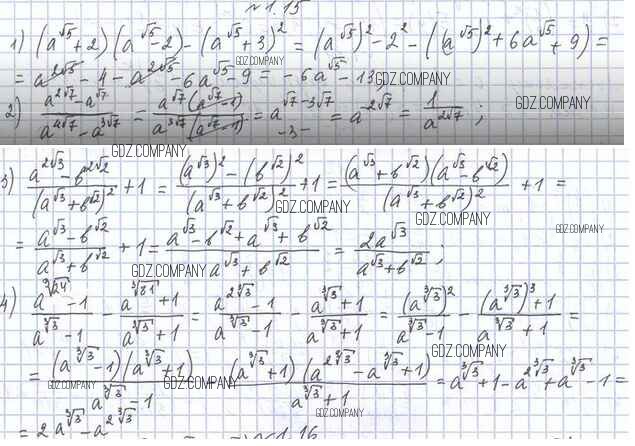 № 1.15
1) (a^√5 + 2)(a^√5 - 2) - (a^√5 + 3)² = (a^√5)² - 2² - ((a^√5)² + 6a^√5 + 9) =
GDZ.COMPANY
= a^2√5 - 4 - a^2√5 - 6a^√5 - 9 = -6a^√5 - 13
GDZ.COMPANY
2) (a^2√7 - a^√7)/(a^4√7 - a^3√7) = a^√7(a^√7 - 1)/a^3√7(a^√7 - 1) = a^√7-3√7 = a^-2√7 = 1/a^2√7 ;
GDZ.COMPANY
-3-
GDZ.COMPANY
3) (a^2√3 - b^2√2)/(a^√3 + b^√2)² + 1 = ((a^√3)² - (b^√2)²)/(a^√3 + b^√2)² + 1 = (a^√3 + b^√2)(a^√3 - b^√2)/(a^√3 + b^√2)² + 1 =
GDZ.COMPANY
GDZ.COMPANY
GDZ.COMPANY
= (a^√3 - b^√2)/(a^√3 + b^√2) + 1 = (a^√3 - b^√2 + a^√3 + b^√2)/(a^√3 + b^√2) = 2a^√3/(a^√3 + b^√2) ;
GDZ.COMPANY
4) (a^∛24 - 1)/(a^∛3 - 1) - (a^∛81 + 1)/(a^∛3 + 1) = (a^2∛3 - 1)/(a^∛3 - 1) - (a^3∛3 + 1)/(a^∛3 + 1) = (a^∛3)²/(a^∛3 - 1) - ((a^∛3)³ + 1)/(a^∛3 + 1) =
GDZ.COMPANY
= (a^∛3 - 1)(a^∛3 + 1)/(a^∛3 - 1) - (a^∛3 + 1)(a^2∛3 - a^∛3 + 1)/(a^∛3 + 1) = a^∛3 + 1 - a^2∛3 + a^∛3 - 1 =
GDZ.COMPANY
GDZ.COMPANY
GDZ.COMPANY
= 2a^∛3 - a^2∛3
1.16